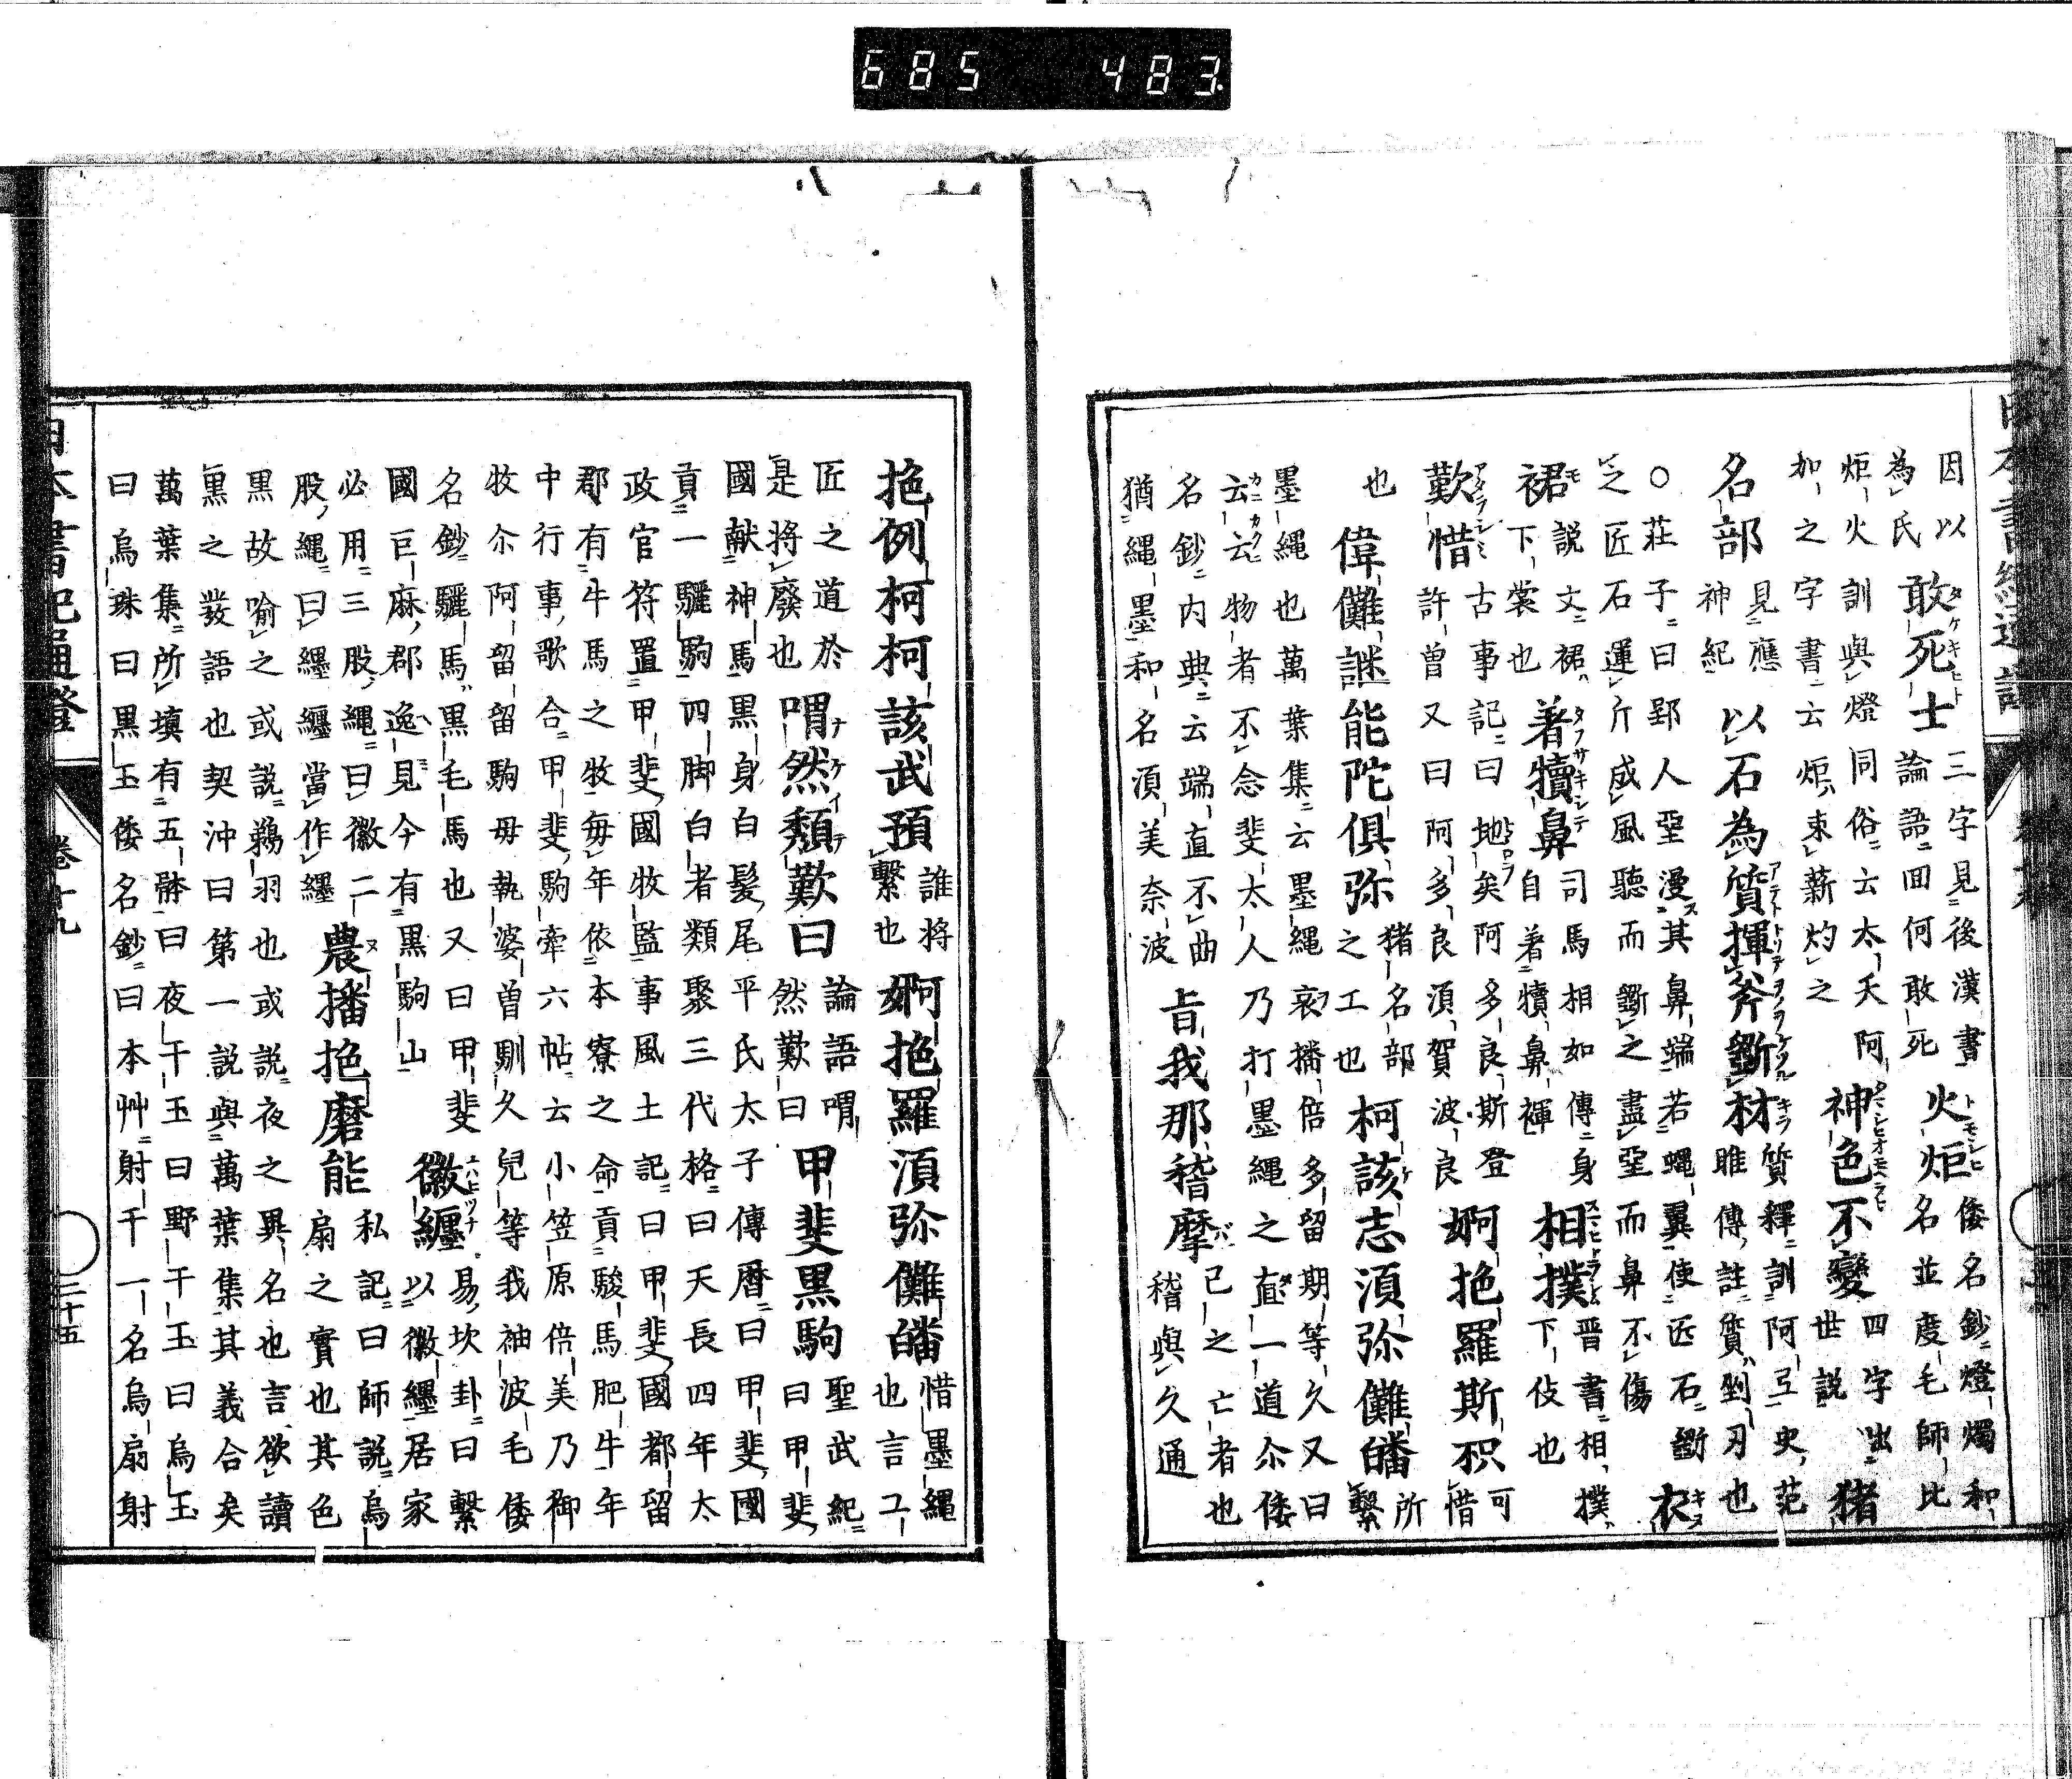 因以為氏敢死士三字見後漢書論語回何敢死火炬倭名鈔燈燭和名並度毛師比
炬火訓與燈同俗云太夭阿加之字書云炬束薪灼之神色不變四字出世説猪
名部見應神紀以石為質揮斧斵材質釋訓阿弖史范雎傳註質剉刃也
○莊子曰郢人堊漫其鼻端若蠅翼使匠石斵之匠石運斤成風聽而斵之盡堊而鼻不傷衣
裙説文裙下裳也著犢鼻司馬相如傳身自著犢鼻褌相撲晋書相撲下伎也
歎惜古事記曰地矣阿多良斯登許曽又曰阿多良湏賀波良婀拕羅斯枳可惜
也偉儺謎能陀倶弥猪名部之工也柯該志湏弥儺皤所繫
墨縄也萬葉集云墨縄哀播倍多留期等久又曰云云物者不念斐太人乃打墨縄之直一道尒倭
名鈔内典云端直不曲猶縄墨和名湏美奈波旨我那稽摩已之亡者也稽與久通
拕例柯柯該武預誰将繫也婀拕羅湏弥儺皤惜墨縄也言工
匠之道於是将廢也喟然頽歎曰論語喟然歎曰甲斐黒駒聖武紀曰甲斐
國献神馬黒身白髪尾平氏太子傳暦曰甲斐國貢一驪駒四脚白者類聚三代格曰天長四年太
政官符置甲斐國牧監事風土記曰甲斐國都留郡有牛馬之牧毎年依本寮之命貢駿馬肥牛年
中行事歌合甲斐駒牽六帖云小笠原倍美乃御牧尒阿留留駒毋執婆曽馴久兒等我袖波毛倭
名鈔驪馬黒毛馬也又曰甲斐國巨麻郡逸見今有黒駒山徽纏易坎卦曰繫以徽纆居家
必用三股縄曰徽二股縄曰纆纏當作纆農播拕磨能私記曰師説烏扇之實也其色
黒故喻之或説鵐羽也或説夜之異名也言欲讀黒之發語也契沖曰第一説與萬葉集其義合矣
萬葉集所填有五體曰夜干玉曰野干玉曰烏玉曰烏珠曰黒玉倭名鈔曰本艸射干一名烏扇射
日本書紀通證 卷十九 三十五
685 483